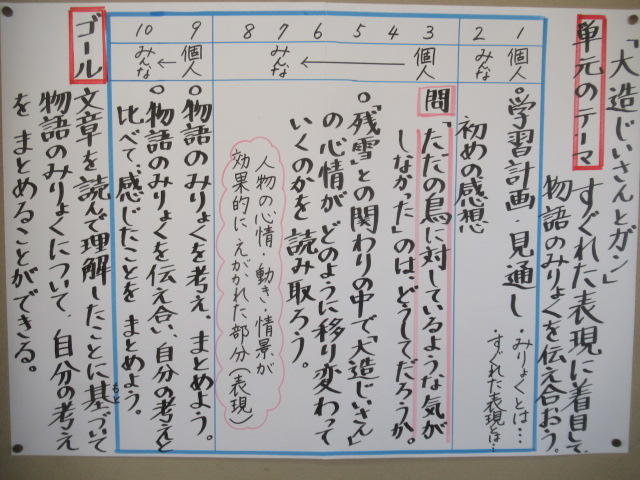 「大造じいさんとガン」
単元のテーマ
すぐれた表現に着目して
物語のみりょくを伝え合おう。
1 2 3 4 5 6 7 8 9 10
個人 みんな 個人 ← みんな 個人 ← みんな
○学習計画・見通し
・みりょくとは…
・すぐれた表現とは…
初めの感想
問「ただの鳥に対しているような気が
しなかった」のは、どうしてだろうか。
○「残雪」との関わりの中で「大造じいさん」
の心情が、どのように移り変わって
いくのかを読み取ろう。
人物の心情・動き・情景が
効果的にえがかれた部分(表現)
○物語のみりょくを考え、まとめよう。
○物語のみりょくを伝え合い、自分の考えと
比べて、感じたことをまとめよう。
ゴール
文章を読んで理解したことに基づいて
もと
物語のみりょくについて、自分の考え
をまとめることができる。